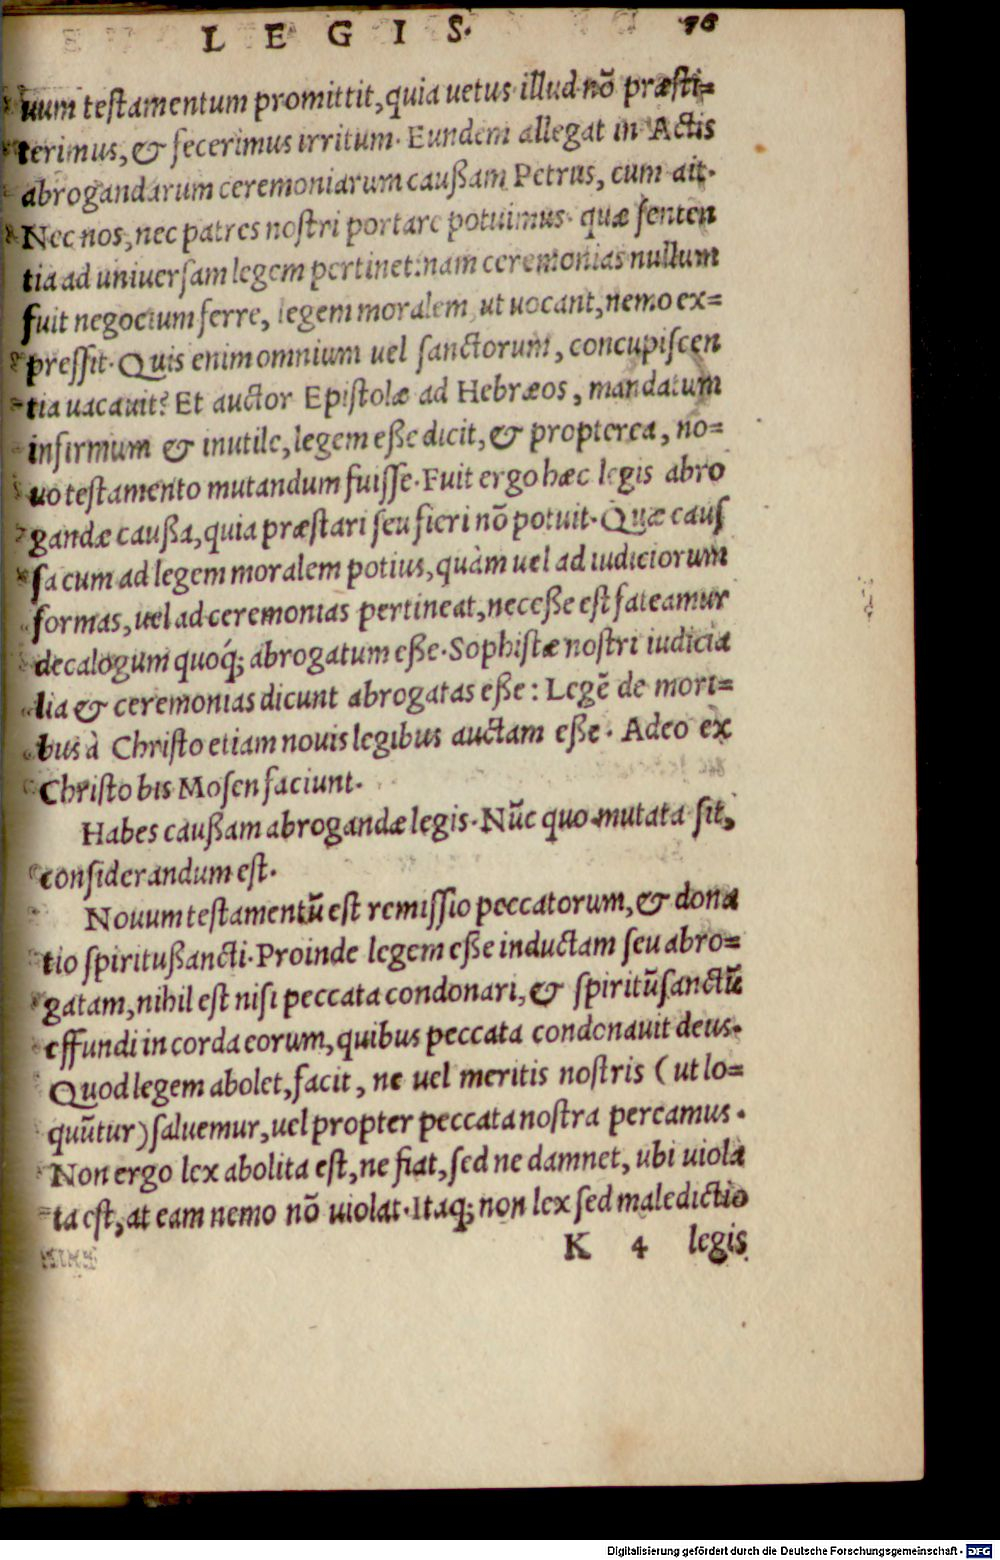 LEGIS. 76
uum testamentum promittit, quia uetus illud nõ præsti=
terimus, & fecerimus irritum. Eundem allegat in Actis
abrogandarum ceremoniarum caußam Petrus, cum ait.
Nec nos, nec patres nostri portare potuimus. quæ senten
tia ad uniuersam legem pertinet: nam ceremonias nullum
fuit negocium ferre, legem moralem, ut uocant, nemo ex=
pressit. Quis enim omnium uel sanctorum, concupiscen
tia uacauit? Et auctor Epistolæ ad Hebræos, mandatum
infirmum & inutile, legem eße dicit, & propterea, no=
uo testamento mutandum fuisse. Fuit ergo hæc legis abro
gandæ caußa, quia præstari seu fieri nõ potuit. Quæ caus
sa cum ad legem moralem potius, quàm uel ad iudiciorum
formas, uel ad ceremonias pertineat, neceße est fateamur
decalogum quoq; abrogatum eße. Sophistæ nostri iudicia
lia & ceremonias dicunt abrogatas eße: Legẽ de mori=
bus à Christo etiam nouis legibus auctam eße. Adeo ex
Christo bis Mosen faciunt.
Habes caußam abrogandæ legis. Nũc quo mutata sit,
considerandum est.
Nouum testamentũ est remissio peccatorum, & dona
tio spiritußancti. Proinde legem eße inductam seu abro=
gatam, nihil est nisi peccata condonari, & spiritũsanctũ
effundi in corda eorum, quibus peccata condonauit deus.
Quod legem abolet, facit, ne uel meritis nostris (ut lo=
quũtur) saluemur, uel propter peccata nostra pereamus.
Non ergo lex abolita est, ne fiat, sed ne damnet, ubi uiola
ta est, at eam nemo nõ uiolat. Itaq; non lex sed maledictio
K 4 legis
Digitalisierung gefördert durch die Deutsche Forschungsgemeinschaft - DFG